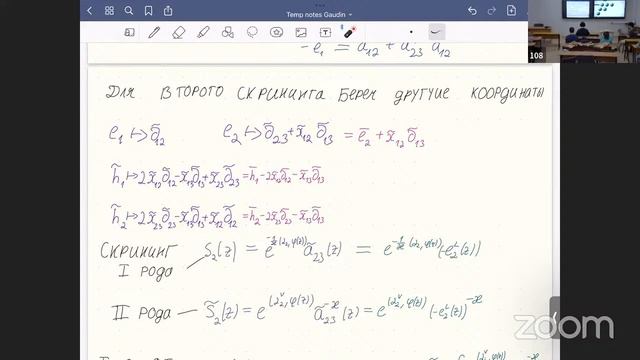 Temp notes Gaudin
-e₁ = a₁₂ + a₂₃ a₁₂
Для второго скрининга берем другие координаты
e₁ ↦ ∂̃₁₂ e₂ ↦ ∂̃₂₃ + x̃₁₂ ∂̃₁₃ = ē₂ + x̃₁₂ ∂̃₁₃
h̃₁ ↦ 2x̃₁₂∂̃₁₂ - x̃₁₃∂̃₁₃ + x̃₂₃∂̃₂₃ = h̄₁ - 2x̃₁₂∂̃₁₂ - x̃₁₃∂̃₁₃
h̃₂ ↦ 2x̃₂₃∂̃₂₃ - x̃₁₃∂̃₁₃ + x̃₁₂∂̃₁₂ = h̄₂ - 2x̃₂₃∂̃₂₃ - x̃₁₃∂̃₁₃
Скрининг
I рода
S₂(z) = ã₂₃(z) = (-e₂ᴸ(z))
II рода — S̃₂(z) = e^(α₂ᵛ, φ(z)) ã₂₃^(-ϰ)(z) = e^(α₂ᵛ, φ(z)) (-e₂ᴸ(z))^(-ϰ)
108
zoom